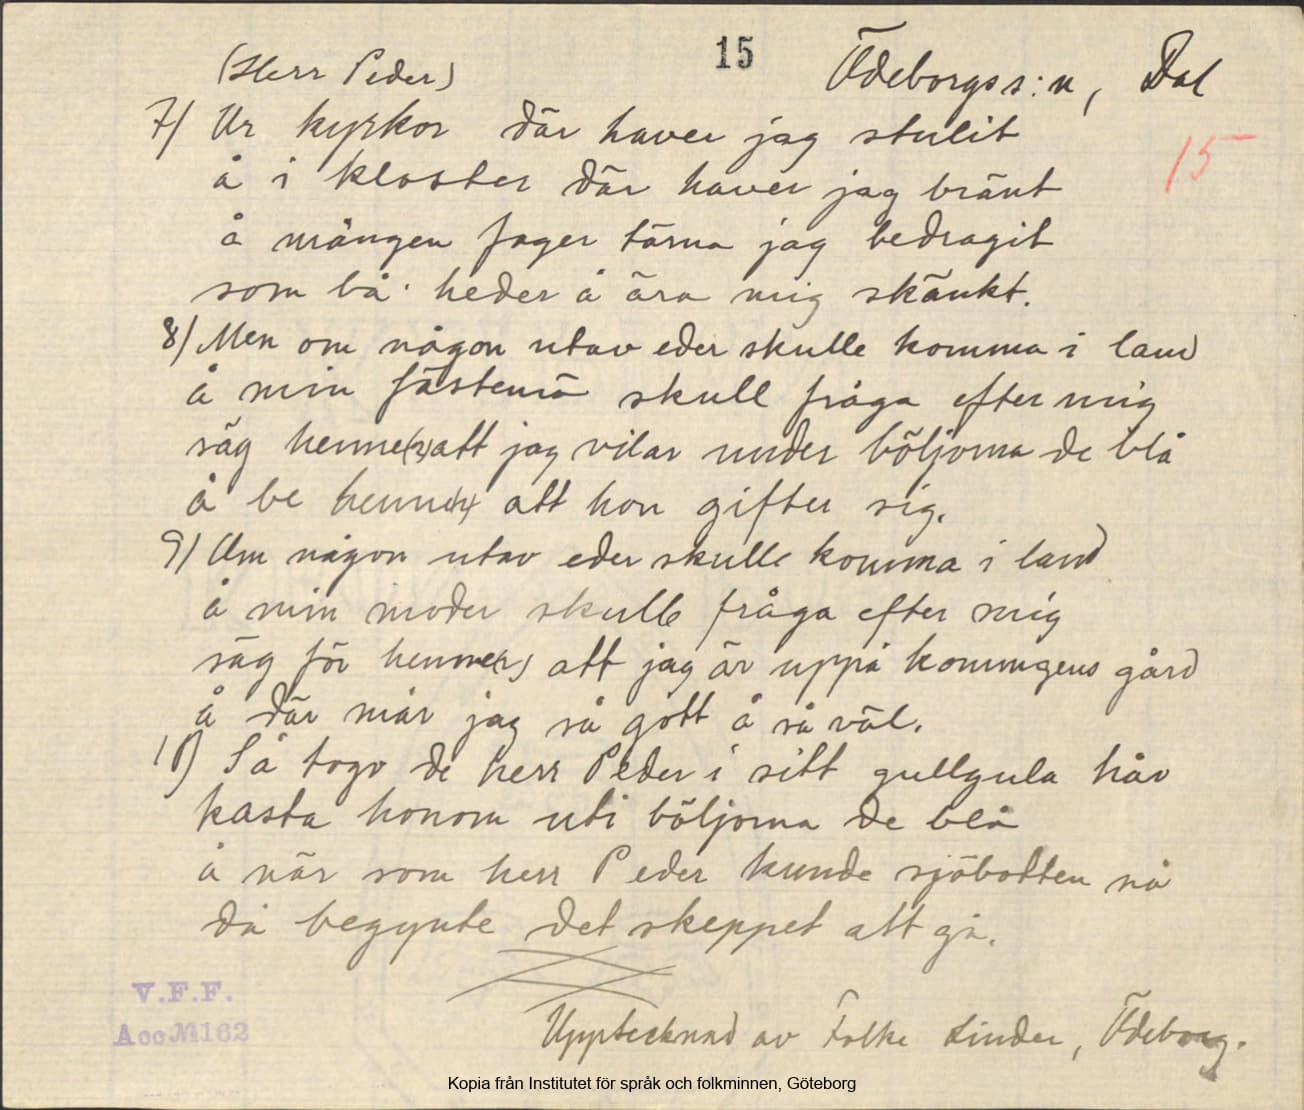 (Herr Peder)
15
Ödeborgs s:n, Dal
15
7/ Ur kyrkor där haver jag stulit
å i kloster där haver jag bränt
å mången fager tärna jag bedragit
som bå heder å ära mig skänkt.
8/ Men om någon utav eder skulle komma i land
å min fästemö skull fråga efter mig
säg henne(r) att jag vilar under böljorna de blå
å be henne(r) att hon gifter sig.
9/ Om någon utav eder skulle komma i land
å min moder skulle fråga efter mig
säg för henne(r) att jag är uppå konungens gård
å där mår jag så gott å så väl.
10) Så togo de herr Peder i sitt gullgula hår
kasta honom uti böljorna de blå
å när som herr Peder kunde sjöbotten nå
då begynte det skeppet att gå.
Upptecknad av Folke Linder, Ödeborg.
V.F.F.
Acc № 162
Kopia från Institutet för språk och folkminnen, Göteborg